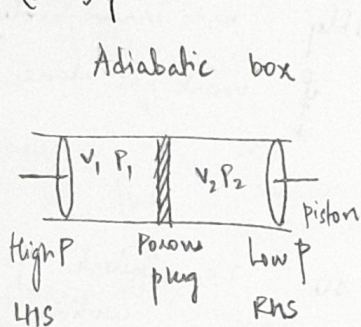 Adiabatic box
V₁ P₁
V₂ P₂
piston
High P Porous Low P
plug
LHS RHS